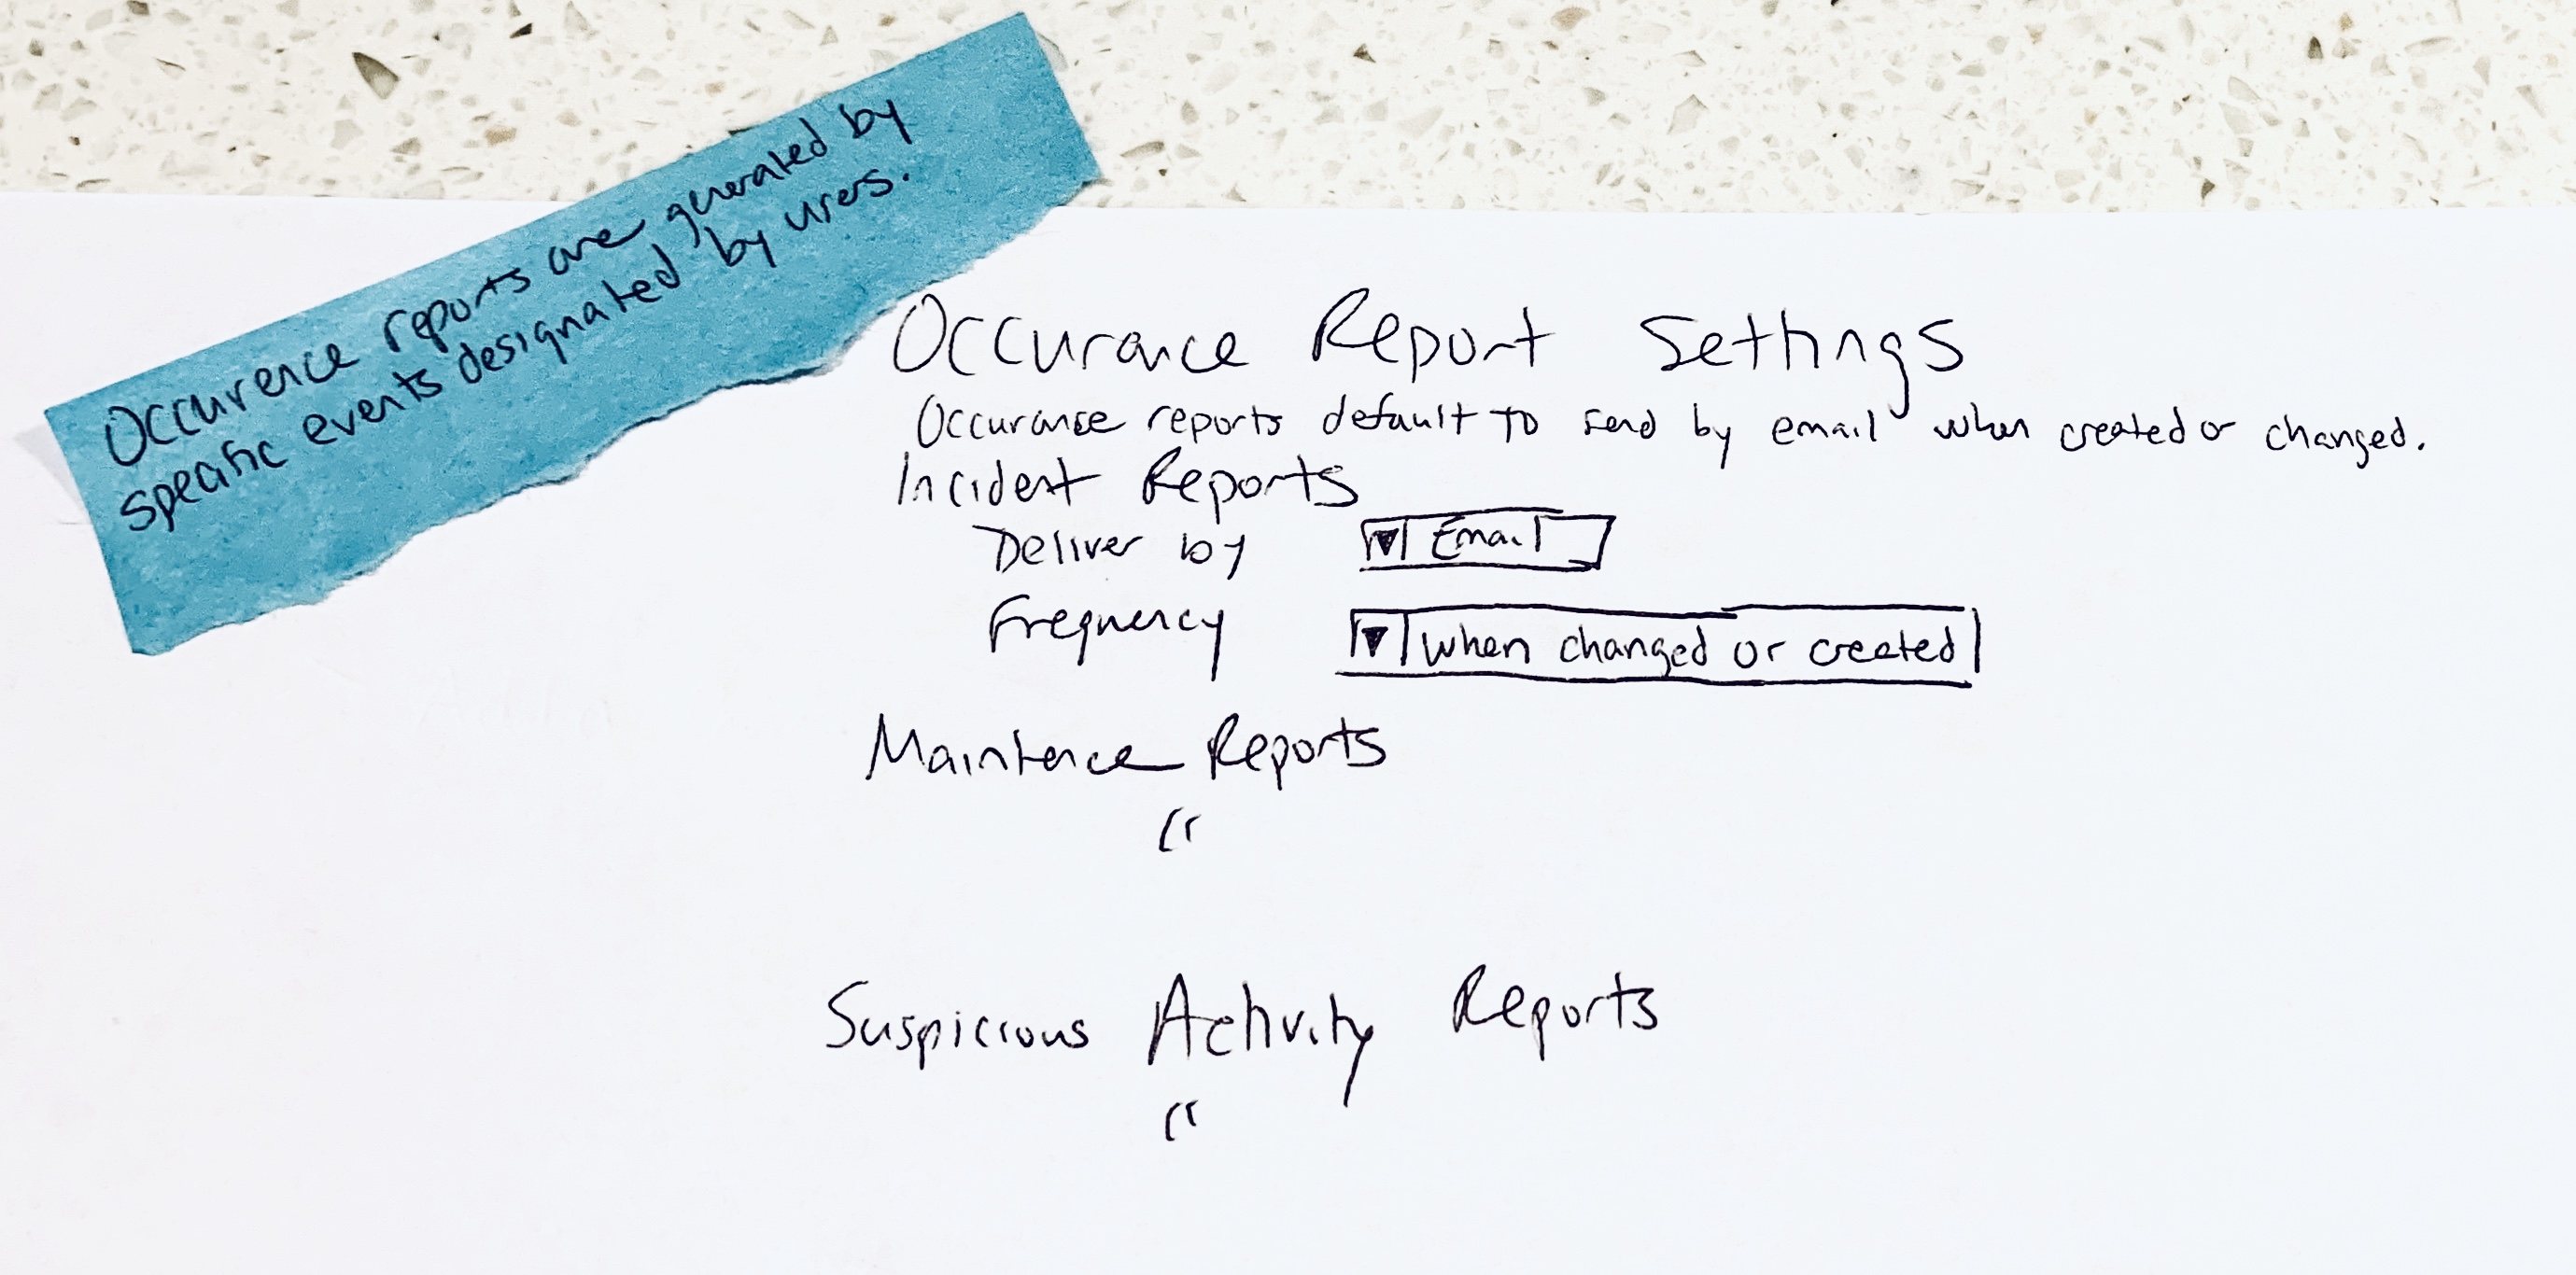 Occurence reports are generated by
specific events designated by users.
Occurance Report Settings
Occurance reports default to send by email when created or changed.
Incident Reports
Deliver by ▼ Email
Frequency ▼ when changed or created
Maintence Reports
"
Suspicious Activity Reports
"